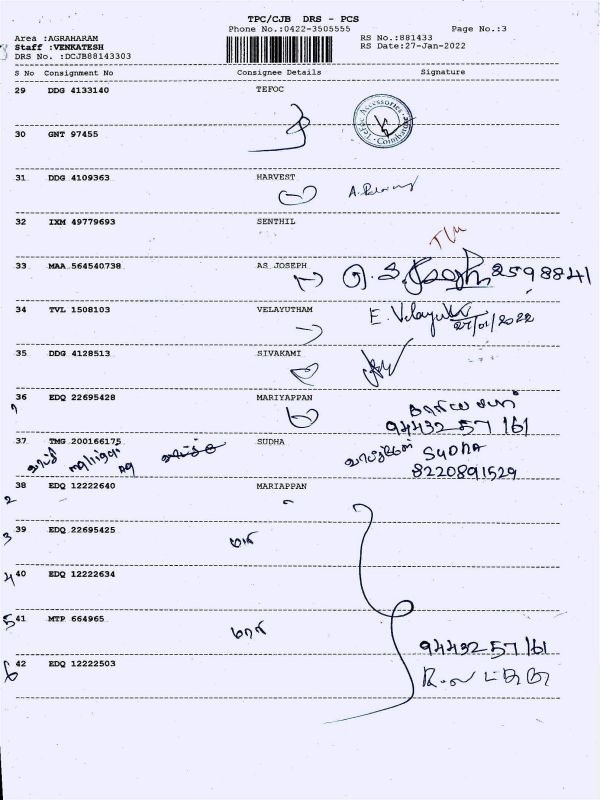 TPC/CJB DRS - PCS
Phone No.:0422-3505555 Page No.:3
Area :AGRAHARAM RS No.:881433
Staff :VENKATESH RS Date:27-Jan-2022
DRS No. :DCJB88143303
S No Consignment No Consignee Details Signature
29 DDG 4133140 TEFOC
Accessories
Coimbatore
30 GNT 97455
31 DDG 4109363 HARVEST
32 IXM 49779693 SENTHIL
33 MAA 564540738 AS JOSEPH 2598841
34 TVL 1508103 VELAYUTHAM E. Velayu
27/01/2022
35 DDG 4128513 SIVAKAMI
36 EDQ 22695428 MARIYAPPAN
1 94432 57161
37 TMG 200166175 SUDHA SUDHA
8220891529
38 EDQ 12222640 MARIAPPAN
2
39 EDQ 22695425
3 மாரி
40 EDQ 12222634
4
41 MTP 664965
5 மாரி
94432 57161
42 EDQ 12222503
6